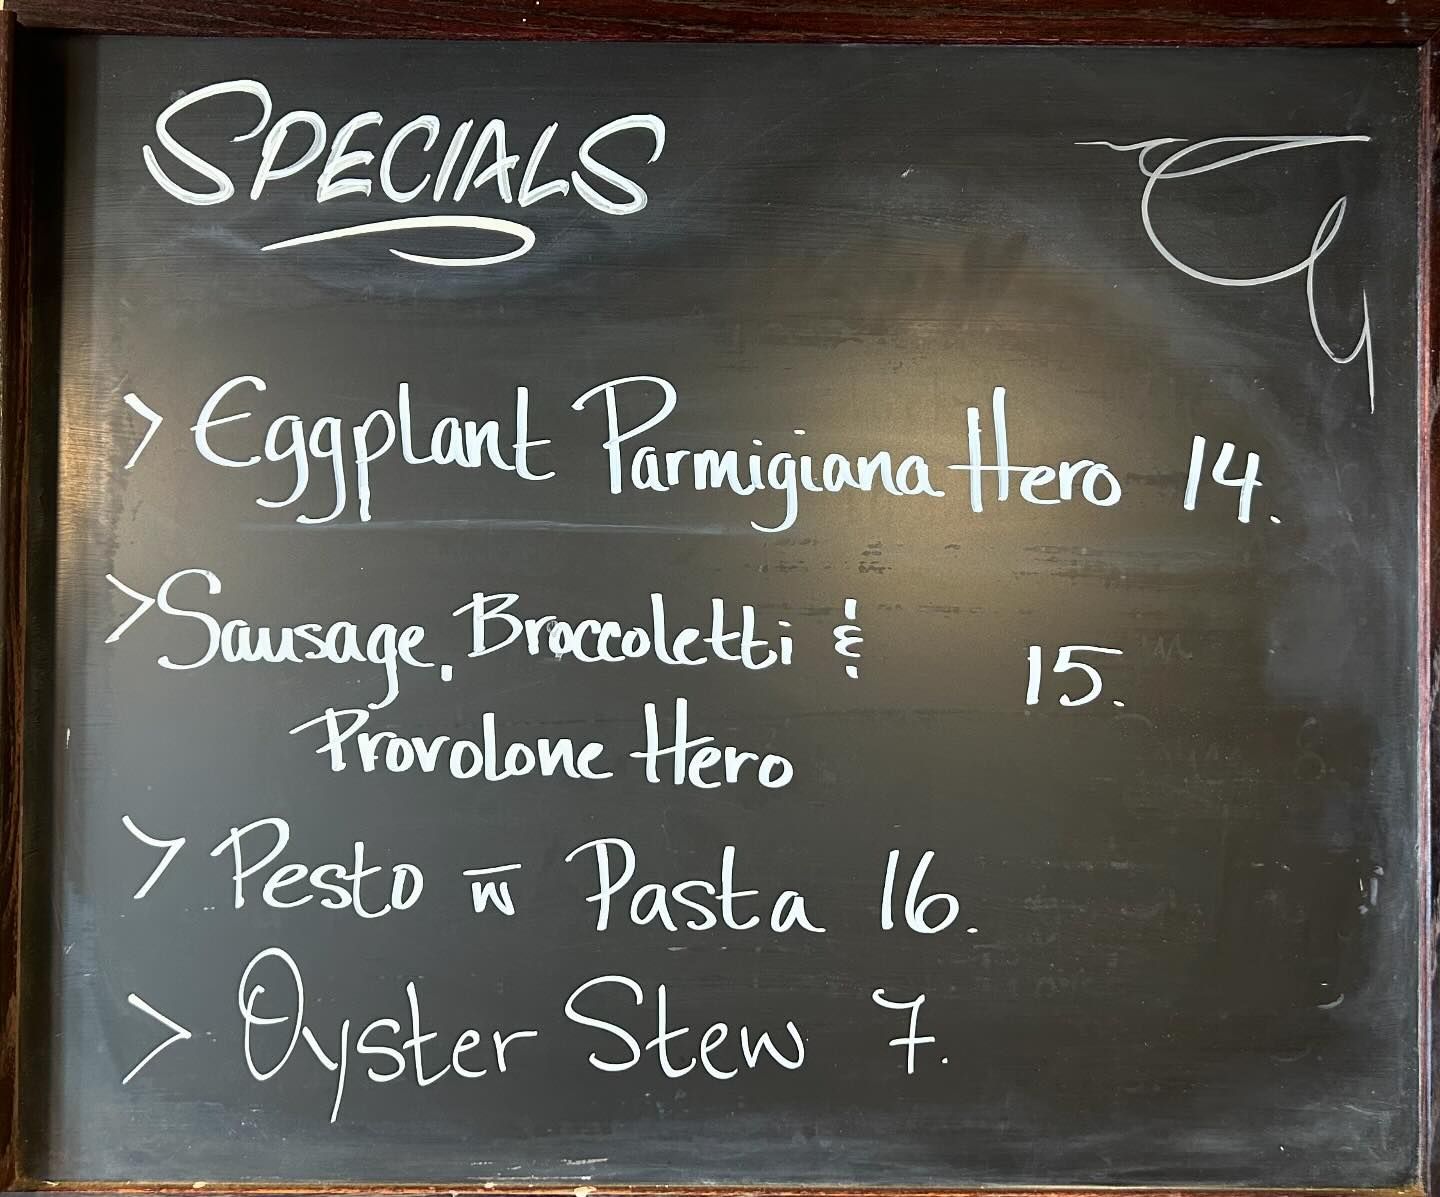 SPECIALS
> Eggplant Parmigiana Hero 14.
> Sausage, Broccoletti &
15.
Provolone Hero
> Pesto w̅ Pasta 16.
> Oyster Stew 7.